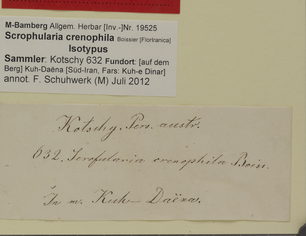 M-Bamberg Allgem. Herbar [Inv.-]Nr. 19525
Scrophularia crenophila Boissier [FlorIranica]
Isotypus
Sammler: Kotschy 632 Fundort: [auf dem
Berg] Kuh-Daëna [Süd-Iran, Fars: Kuh-e Dinar]
annot. F. Schuhwerk (M) Juli 2012
Kotschy. Pers. austr.
632. Scrofularia crenophila Boiss.
In m. Kuh-Daëna.